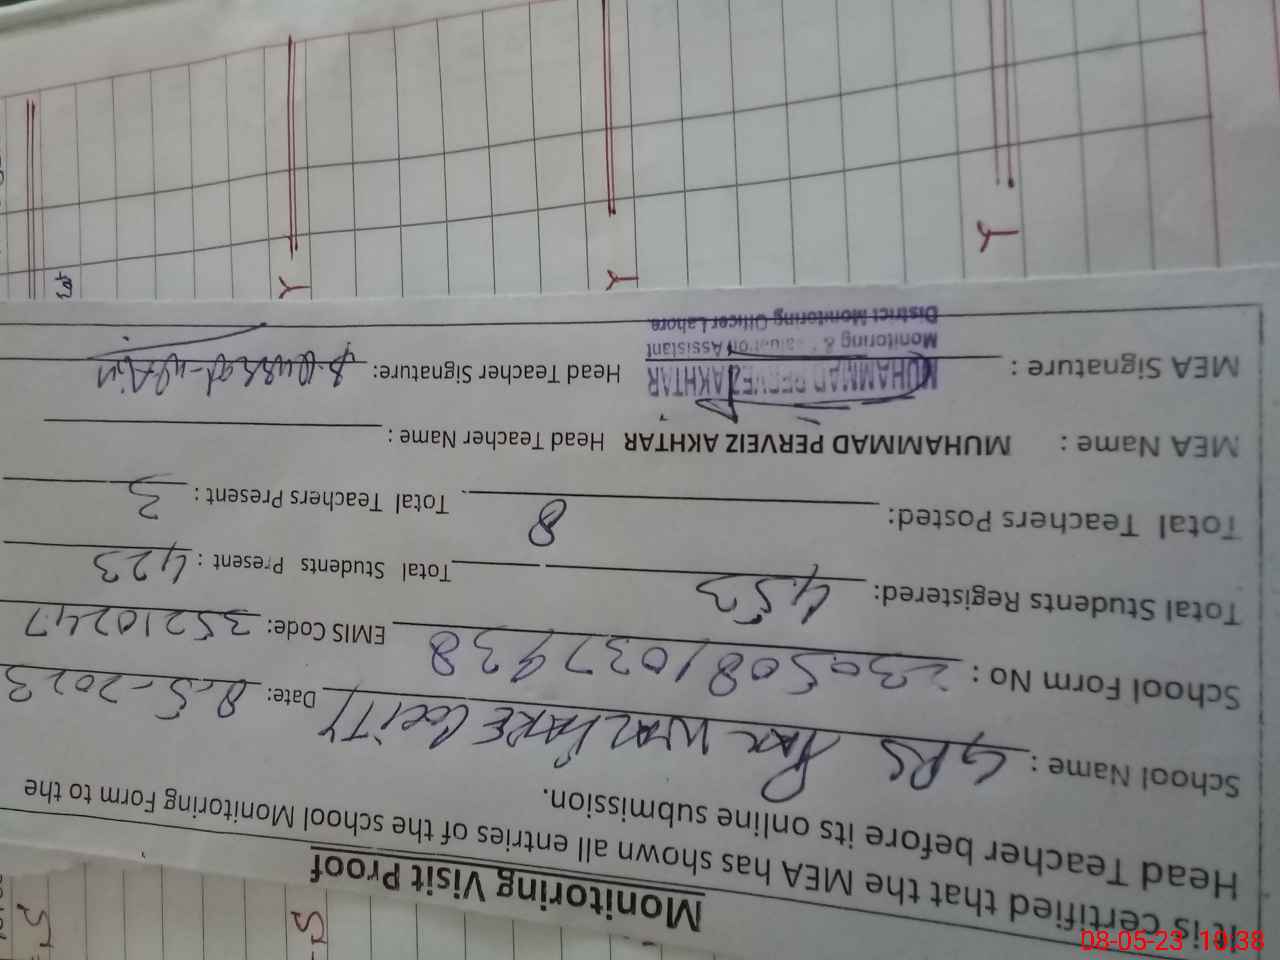 Monitoring Visit Proof
It is certified that the MEA has shown all entries of the school Monitoring Form to the
Head Teacher before its online submission.
School Name : GPS WALFARE Date: 8.5-2023
School Form No : 230508/037938 EMIS Code: 35210247
Total Students Registered: 453 Total Students Present : 423
Total Teachers Posted: 8 Total Teachers Present : 3
MEA Name : MUHAMMAD PERVEIZ AKHTAR Head Teacher Name :
MEA Signature : Head Teacher Signature:
MUHAMMAD PERVEZ AKHTAR
Monitoring & Evaluation Assistant
District Monitoring Officer Lahore
08-05-23 10:38